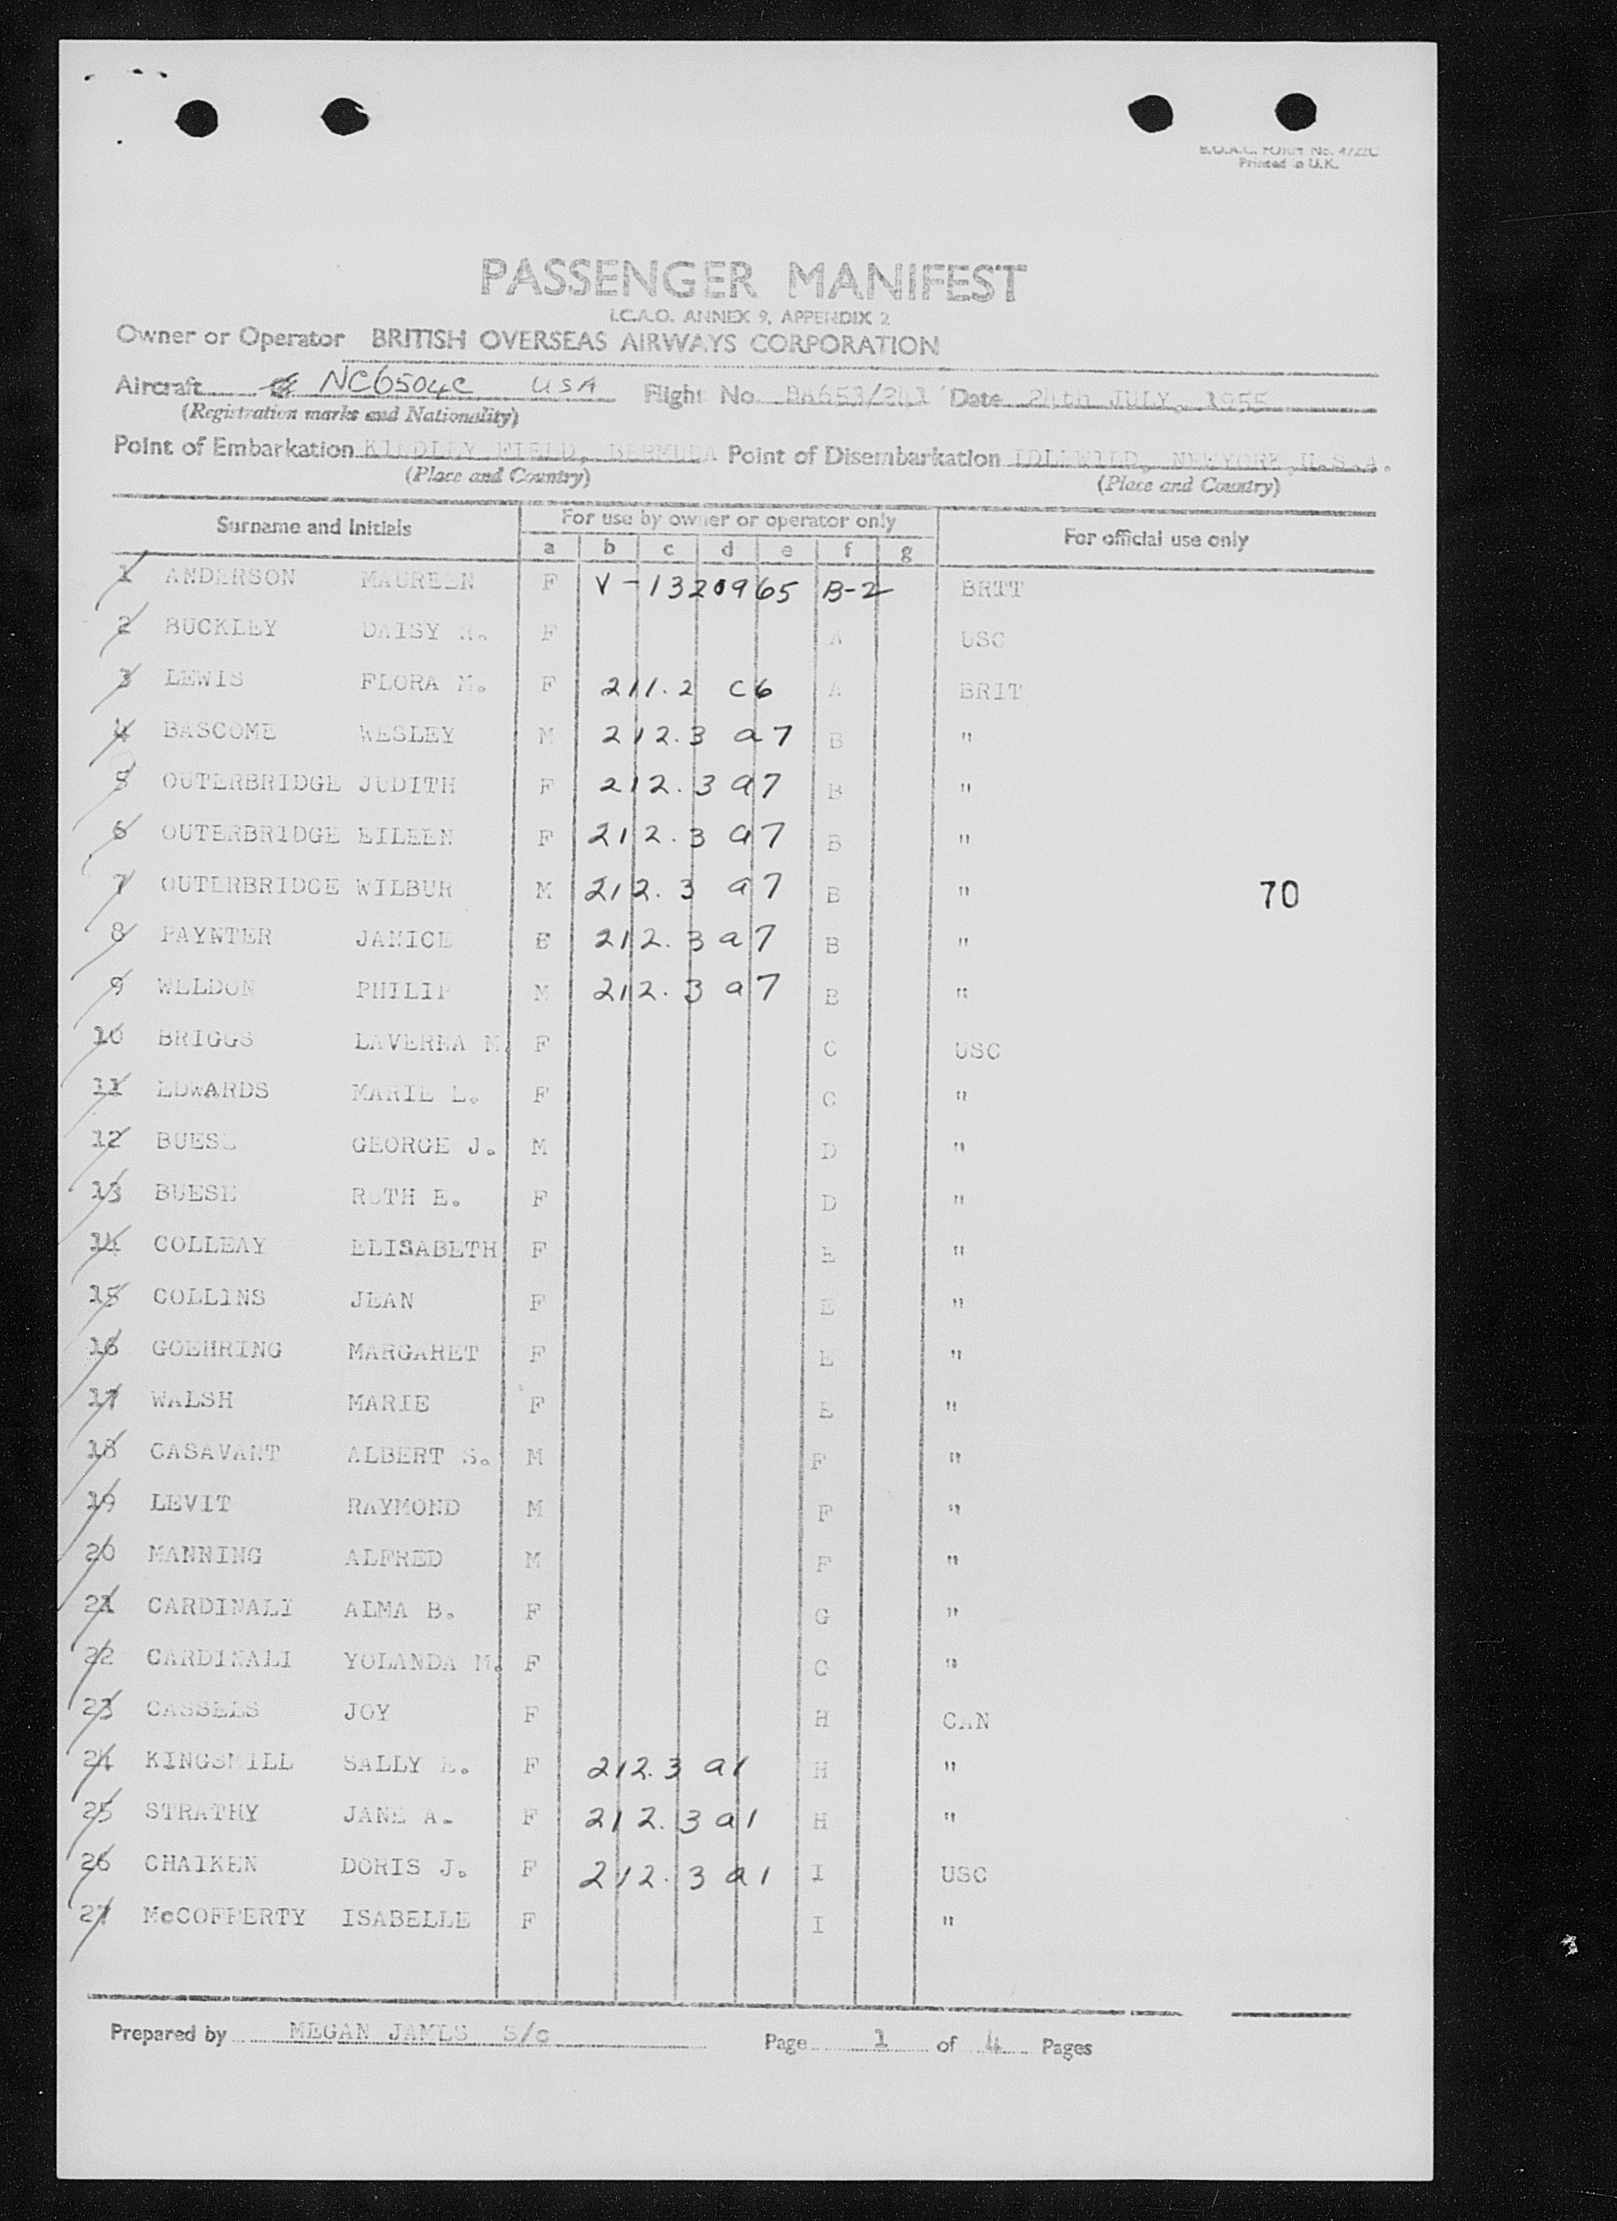 B.O.A.C. FORM No. 4722C
Printed in U.K.
PASSENGER MANIFEST
I.C.A.O. ANNEX 9, APPENDIX 2
Owner or Operator BRITISH OVERSEAS AIRWAYS CORPORATION
Aircraft NC6504C USA Flight No. BA653/241 Date 24th JULY, 1955
(Registration marks and Nationality)
Point of Embarkation KINDLEY FIELD, BERMUDA Point of Disembarkation IDLEWILD, NEWYORK, U.S.A.
(Place and Country) (Place and Country)
Surname and Initials For use by owner or operator only For official use only
a b c d e f g
1 ANDERSON MAUREEN F V-1320965 B-2 BRIT
2 BUCKLEY DAISY F A USC
3 LEWIS FLORA M. F 211.2 C6 A BRIT
4 BASCOME WESLEY M 212.3 a7 B "
5 OUTERBRIDGE JUDITH F 212.3 a7 B "
6 OUTERBRIDGE EILEEN F 212.3 a7 B "
7 OUTERBRIDGE WILBUR M 212.3 a7 B "
70
8 PAYNTER JANICE F 212.3 a7 B "
9 WELDON PHILIP M 212.3 a7 B "
10 BRIGGS LAVERNA M. F C USC
11 EDWARDS MARIE L. F C "
12 BUESE GEORGE J. M D "
13 BUESE RUTH E. F D "
14 COLLEAY ELISABETH F E "
15 COLLINS JEAN F E "
16 GOEHRING MARGARET F E "
17 WALSH MARIE F E "
18 CASAVANT ALBERT S. M F "
19 LEVIT RAYMOND M F "
20 MANNING ALFRED M F "
21 CARDINALI ALMA B. F G "
22 CARDINALI YOLANDA M. F G "
23 CASSELS JOY F H CAN
24 KINGSMILL SALLY E. F 212.3 a1 H "
25 STRATHY JANE A. F 212.3 a1 H "
26 CHAIKEN DORIS J. F 212.3 a1 I USC
27 McCOFFERTY ISABELLE F I "
Prepared by MEGAN JAMES S/c Page 1 of 4 Pages